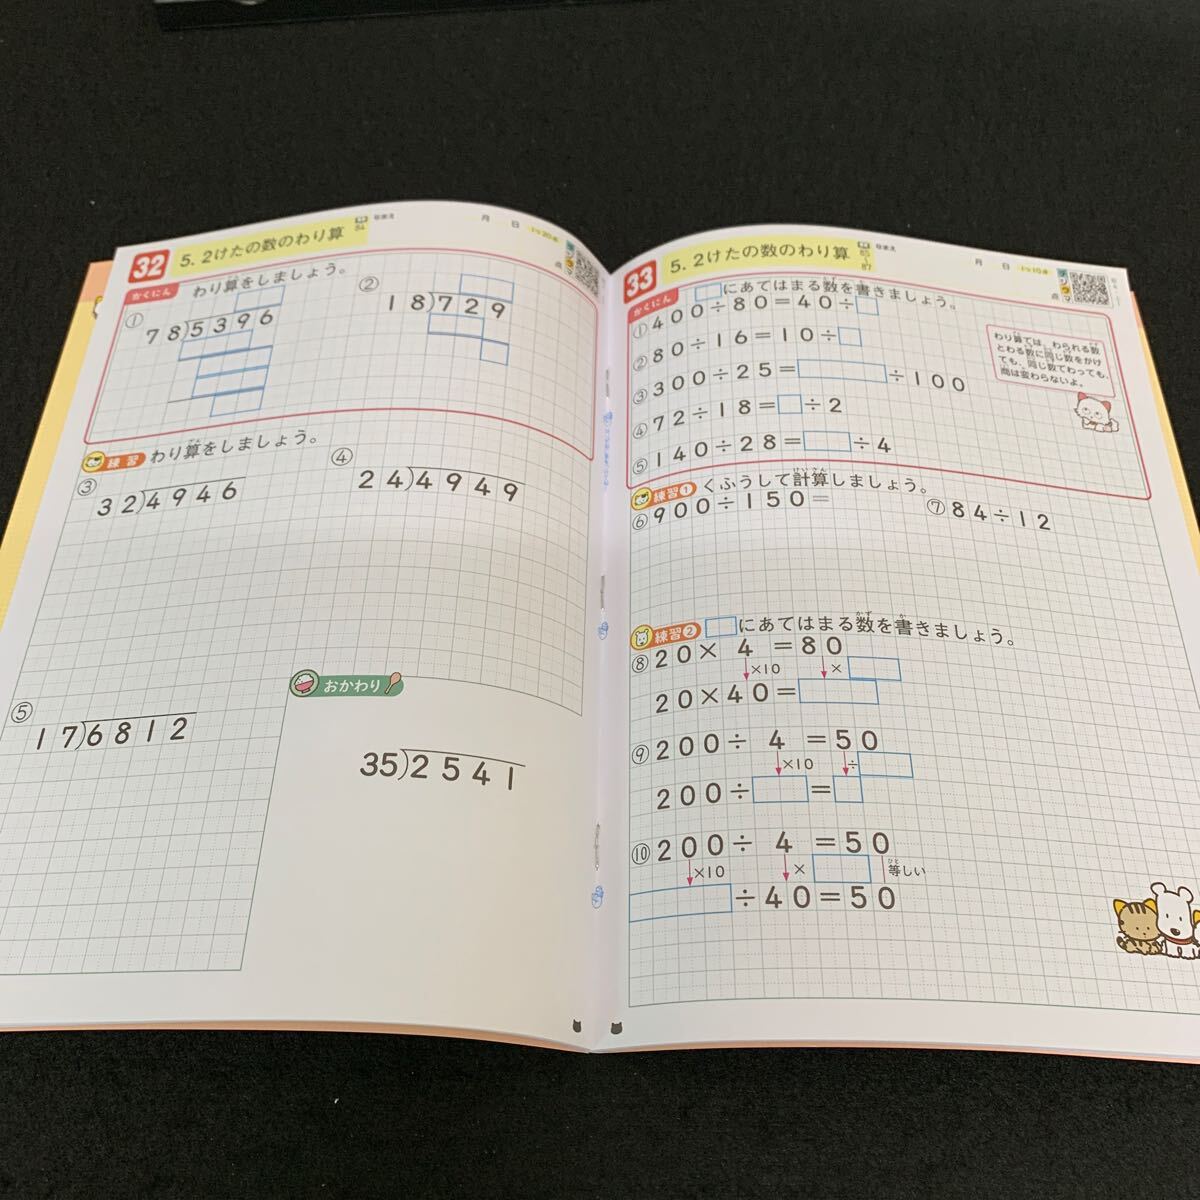 32
5. 2けたの数のわり算
84
なまえ
月 日
1つ20点
点
かくにん
わり算をしましょう。
① 78)5396
② 18)729
練習 わり算をしましょう。
③ 32)4946
④ 24)4949
⑤ 17)6812
おかわり
35)2541
33
5. 2けたの数のわり算
85
87
なまえ
月 日
1つ10点
点
かくにん
□にあてはまる数を書きましょう。
① 400÷80=40÷□
② 80÷16=10÷□
③ 300÷25=□÷100
④ 72÷18=□÷2
⑤ 140÷28=□÷4
わり算では、わられる数
とわる数に同じ数をかけ
ても、同じ数でわっても、
商は変わらないよ。
練習1 くふうして計算しましょう。
⑥ 900÷150=
⑦ 84÷12
練習2 □にあてはまる数を書きましょう。
⑧ 20× 4 =80
×10 ×□
20×40=□
⑨ 200÷ 4 =50
×10 ÷□
200÷□=□
⑩ 200÷ 4 =50
×10 ×□ 等しい
□÷40=50